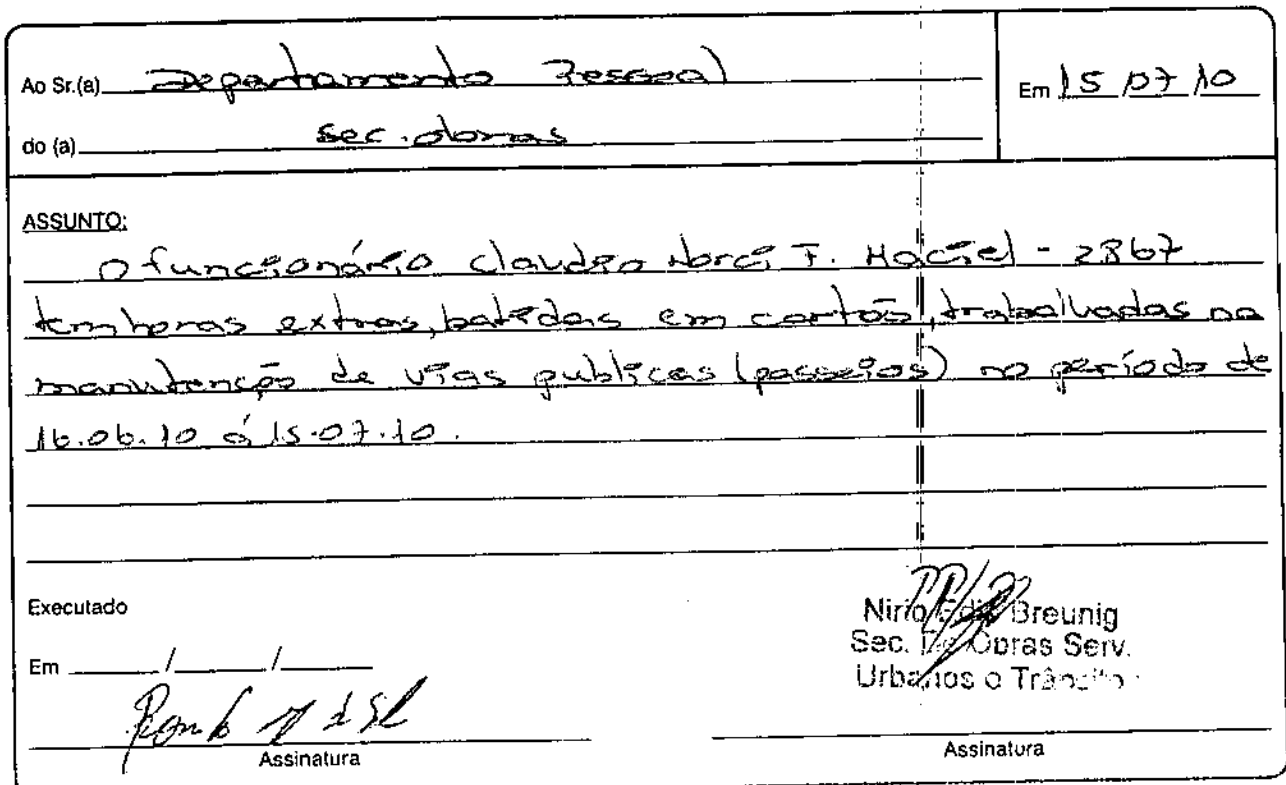 Ao Sr.(a) Departamento Pessoal
Em 15/07/10
do (a) Sec. obras
ASSUNTO:
O funcionário Claudio Norci F. Maciel - 2867
tem horas extras, batidas em cartão, trabalhadas na
manutenção de vias publicas (passeios) no período de
16.06.10 á 15.07.10.
Executado
Em / /
Assinatura
Nirio Breunig
Sec. De Obras Serv.
Urbanos e Trânsito
Assinatura